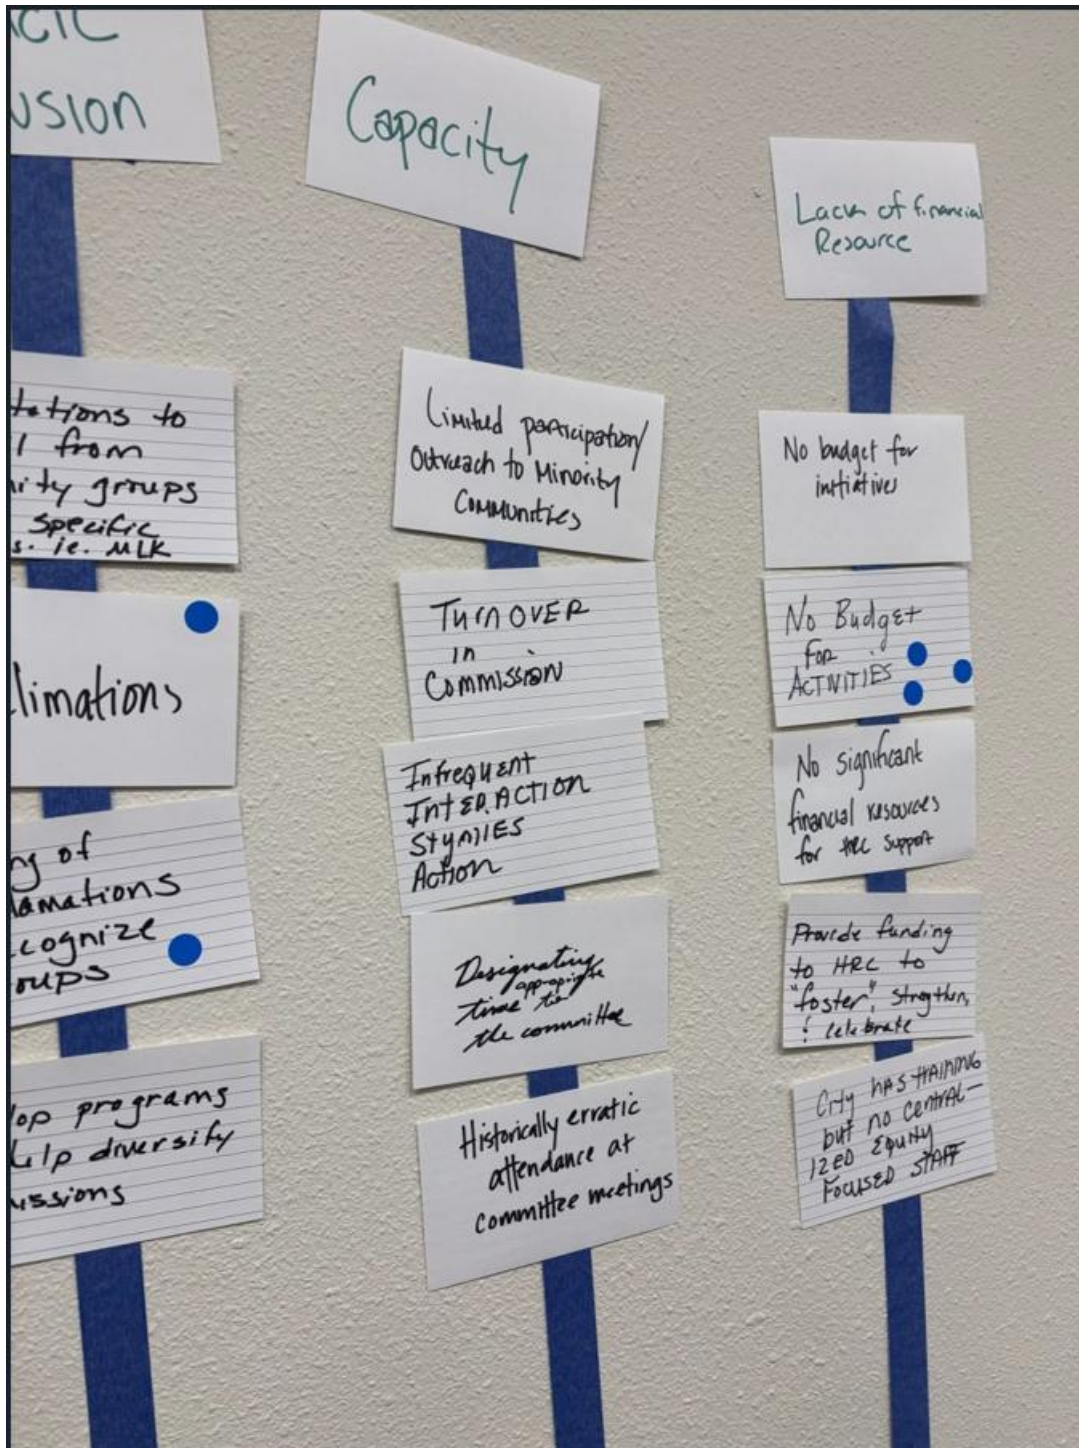 usion
tations to
l from
rity groups
specific
s. ie. MLK
limations
ng of
lamations
cognize
oups
lop programs
elp diversify
issions
Capacity
Limited participation/
Outreach to Minority
Communities
TURNOVER
in
Commission
Infrequent
INTERACTION
STYMIES
Action
Designating
appropriate
time to
the committee
Historically erratic
attendance at
committee meetings
Lack of financial
Resource
No budget for
initiatives
No Budget
FOR
ACTIVITIES
No significant
financial resources
for HRC support
Provide funding
to HRC to
"foster", strengthen,
& celebrate
City HAS TRAINING
but no CENTRAL-
IZED EQUITY
FOCUSED STAFF